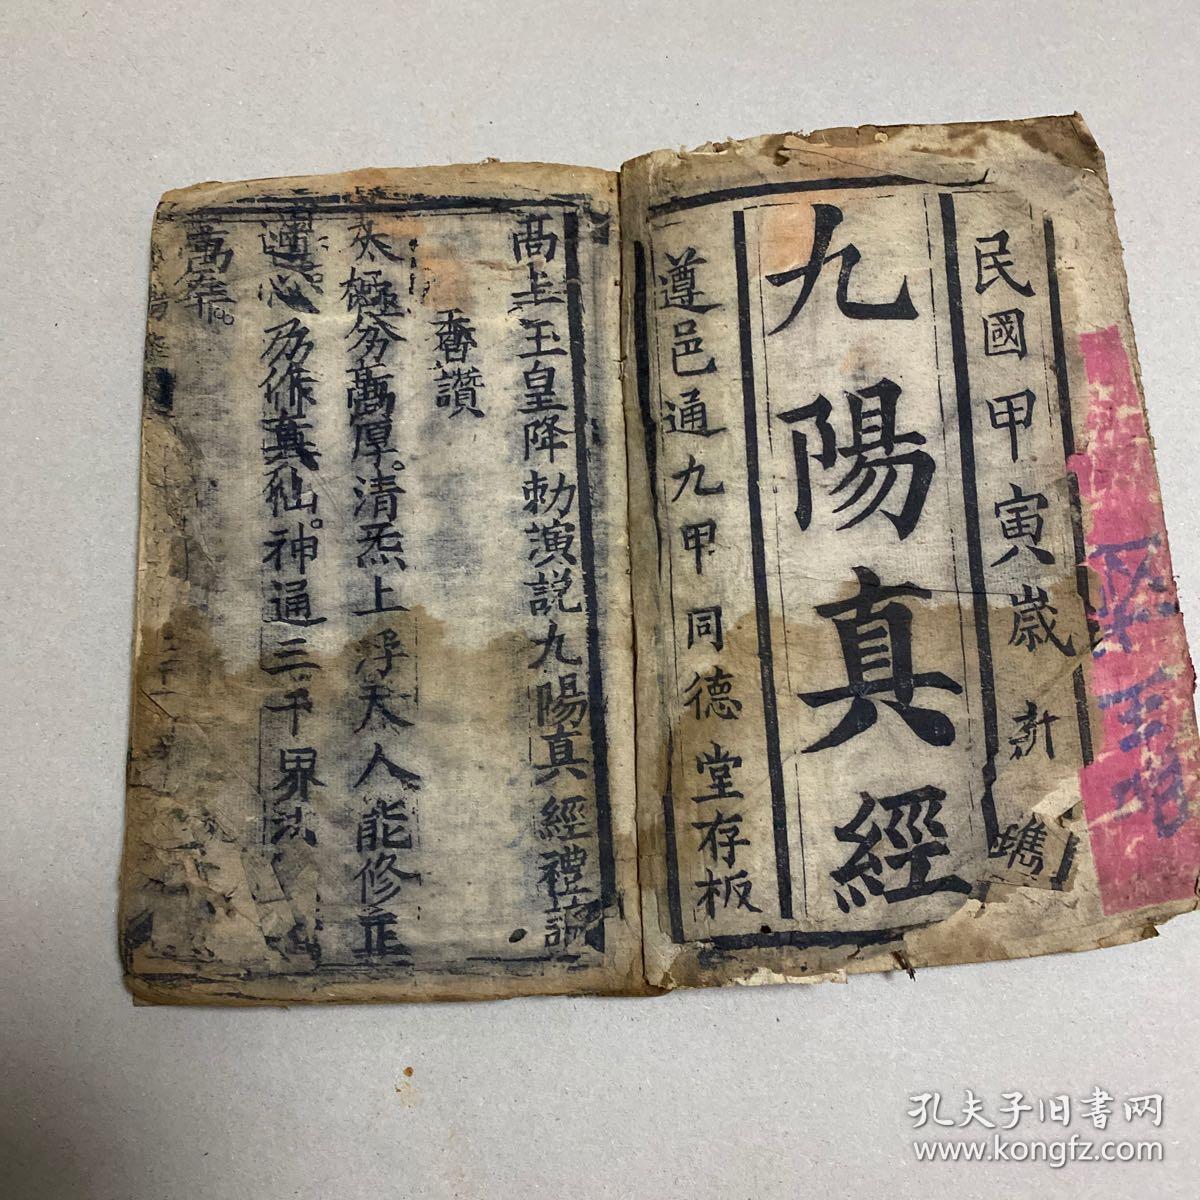 民國甲寅歲新鐫
九陽真經
遵邑通九甲同德堂存板
高上玉皇降勅演説九陽真經禮請
香讚
太極分萬厚。清炁上浮天人能修正
心乃作真仙。神通三千界法
萬
孔夫子旧书网
www.kongfz.com